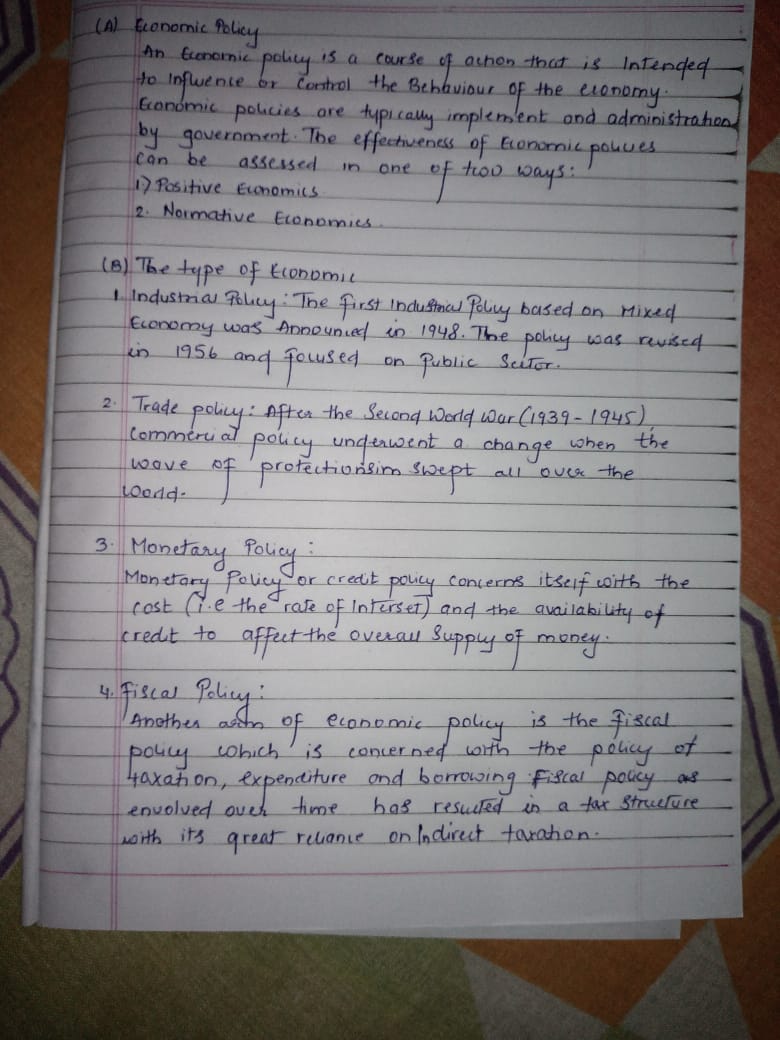 (A) Economic Policy
An Economic policy is a course of action that is Intended
to Influence or Control the Behaviour of the economy.
Economic policies are typically implement and administration
by government. The effectiveness of Economic policies
can be assessed in one of two ways:
1) Positive Economics
2. Normative Economics.
(B) The type of Economic
1. Industrial Policy: The first Industrial Policy based on Mixed
Economy was Announced in 1948. The policy was revised
in 1956 and focused on Public Sector.
2. Trade policy: After the Second World War (1939-1945),
Commercial policy underwent a change when the
wave of protectionsim swept all over the
World.
3. Monetary Policy:
Monetary Policy or credit policy concerns itself with the
cost (i.e the rate of Interset) and the availability of
credit to affect the overall Supply of money.
4. Fiscal Policy:
Another of economic policy is the Fiscal
policy which is concerned with the policy of
taxation, expenditure and borrowing Fiscal policy as
envolved over time has resulted in a tax Structure
with its great reliance on Indirect taxation.